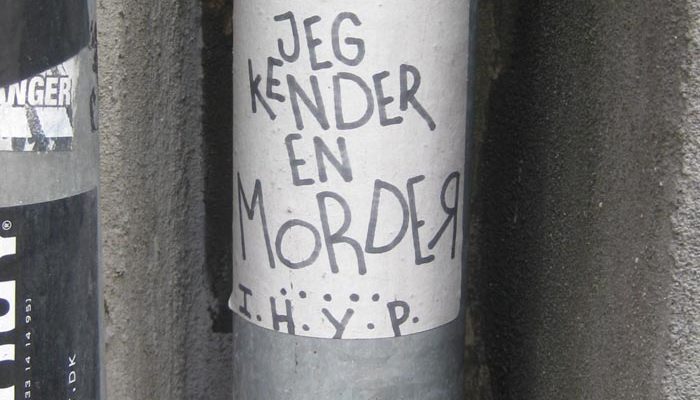 JEG
KENDER
EN
MORDER
......
I.H.Y.P.
NGER
33 14 14 95)
.DK